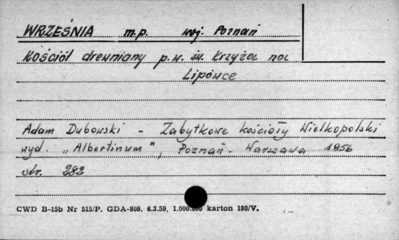 WRZEŚNIA m.p. woj. Poznań
Kościół drewniany p.w. św. Krzyża na
Lipówce
Adam Dubowski - Zabytkowe kościoły Wielkopolski
wyd. "Albertinum", Poznań - Warszawa 1956
str. 282
CWD B-15b Nr 515/P. GDA-809. 6.2.59. 1.000.000 karton 180/V.